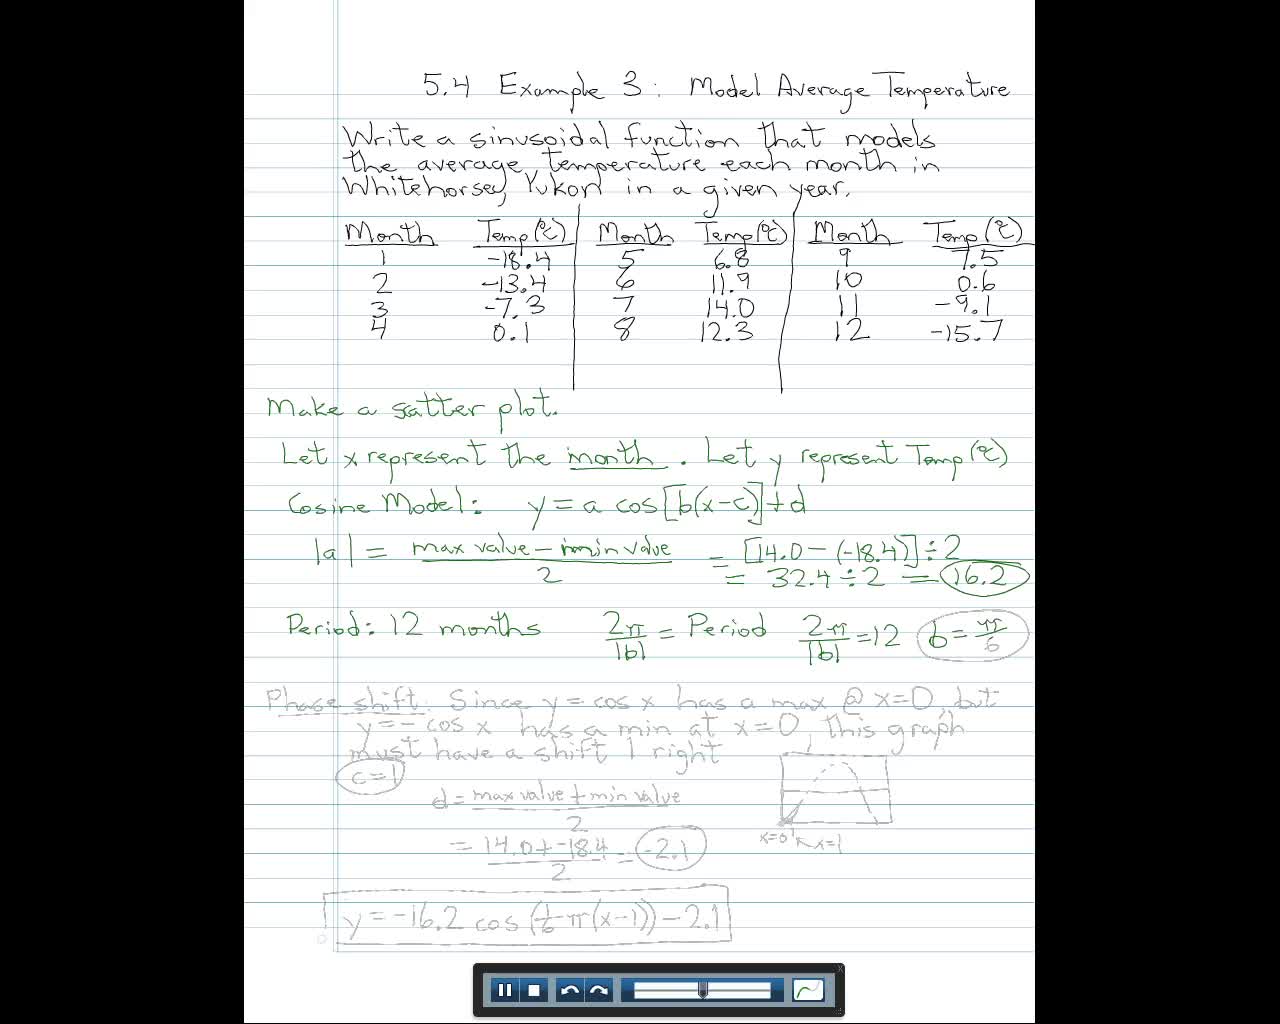 5.4 Example 3: Model Average Temperature
Write a sinusoidal function that models
the average temperature each month in
Whitehorse, Yukon in a given year.
Month Temp(°C) Month Temp(°C) Month Temp(°C)
1 -18.4 5 6.8 9 7.5
2 -13.4 6 11.9 10 0.6
3 -7.3 7 14.0 11 -9.1
4 0.1 8 12.3 12 -15.7
Make a satter plot.
Let x represent the month. Let y represent Temp(°C)
Cosine Model: y = a cos[b(x-c)]+d
|a| = max value - min value / 2 = [14.0 - (-18.4)] ÷ 2
= 32.4 ÷ 2 = 16.2
Period: 12 months 2π/|b| = Period 2π/|b| = 12 b = π/6
Phase shift: Since y = cos x has a max @ x=0, but
y = - cos x has a min at x=0, this graph
must have a shift 1 right
c=1
d = max value + min value / 2
x=0 x=1
= 14.0 + -18.4 / 2 = -2.1
y = -16.2 cos(1/6 π(x-1)) - 2.1